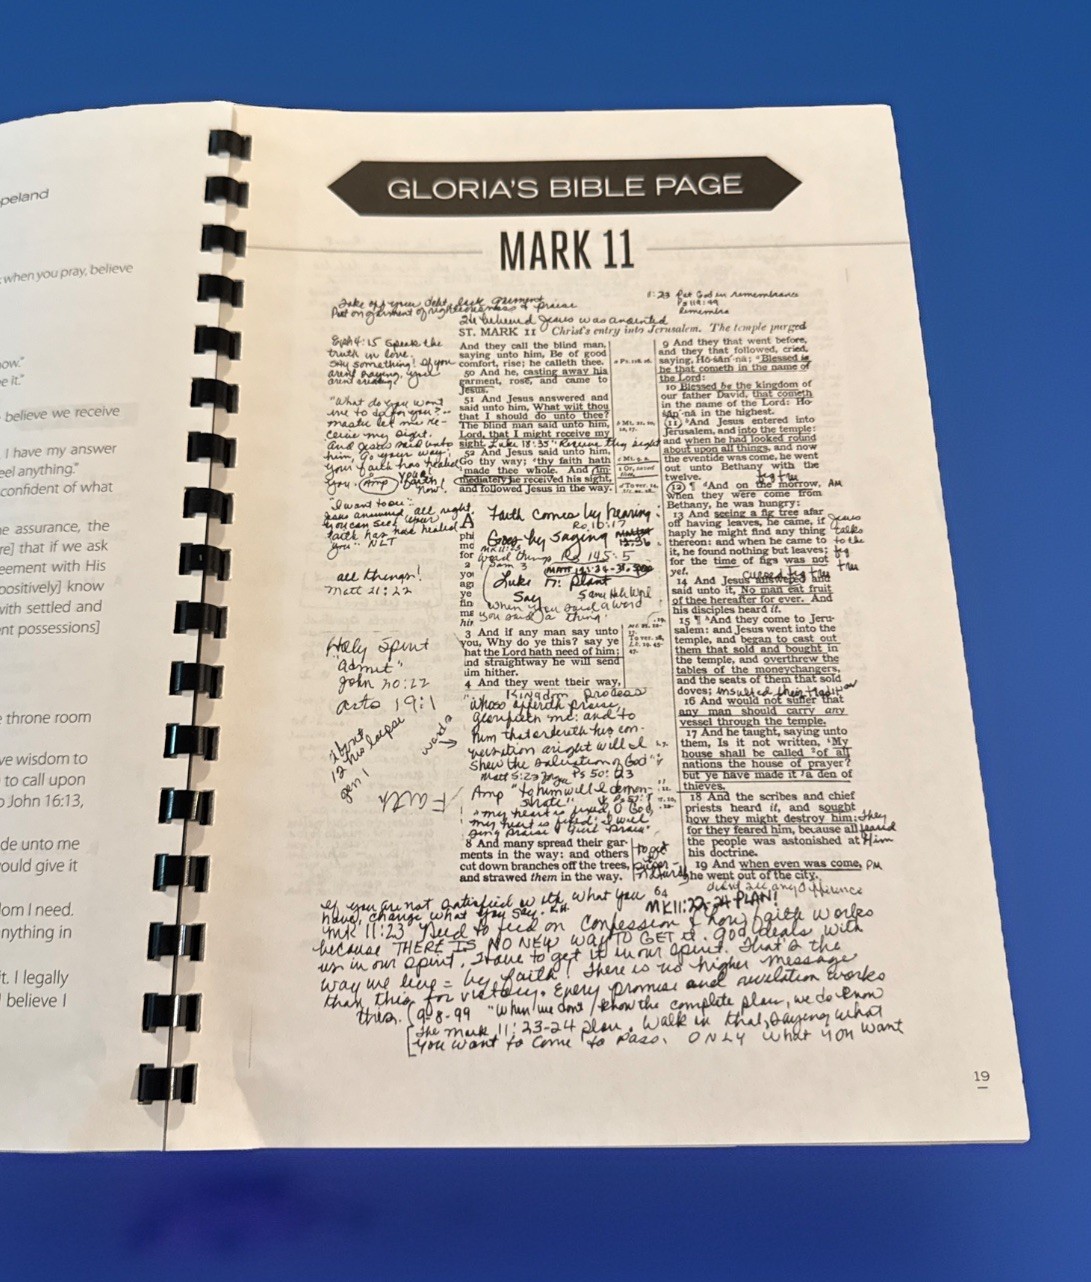 peland
when you pray, believe
ow."
e it."
believe we receive
I have my answer
eel anything."
confident of what
e assurance, the
re] that if we ask
eement with His
positively] know
with settled and
nt possessions]
e throne room
ve wisdom to
to call upon
o John 16:13,
de unto me
ould give it
dom I need.
nything in
it. I legally
believe I
GLORIA'S BIBLE PAGE
MARK 11
Put on garment of righteousness & praise
11:23 Put God in remembrance
Ps 119:49
Remembra
He believed Jesus was anointed
ST. MARK 11 Christ's entry into Jerusalem. The temple purged
Eph 4:15 Speak the
truth in love.
Say something! If you
aren't saying, you
aren't
"What do you want
me to do for you?"
master let me re-
ceive my sight.
And Jesus said unto
him, Go your way;
your faith has healed
you. Amp your faith
now!
"I want to see"
Jesus answered, all right,
you can see your
faith has healed
you" NLT
all things!
Matt 21:22
Holy Spirit
"admit"
John 20:22
Acts 19:1
Gen 1
Faith
And they call the blind man,
saying unto him, Be of good
comfort, rise; he calleth thee.
50 And he, casting away his
garment, rose, and came to
Jesus.
51 And Jesus answered and
said unto him, What wilt thou
that I should do unto thee?
The blind man said unto him,
Lord, that I might receive my
sight. Luke 18:35 "Receive thy sight
52 And Jesus said unto him,
Go thy way; thy faith hath
made thee whole. And im-
mediately he received his sight,
and followed Jesus in the way.
Faith comes by hearing
Ro 10:17
Goes by saying
Mk 11:23
word things Ps 145:5
Matt 12:34-37
Luke 17: Plant
Say
When you said a word
you said a thing.
3 And if any man say unto
you, Why do ye this? say ye
hat the Lord hath need of him;
and straightway he will send
him hither.
4 And they went their way,
Kingdom process
"whoso offereth praise,
glorifieth me: and to
him that ordereth his con-
versation aright will I
shew the salvation of God"
Matt 5:23 Ps 50:23
Amp "to him will I demon-
strate" Ps 57:7
"my heart is fixed, O God
my heart is fixed: I will
sing praise & give praise"
8 And many spread their gar-
ments in the way: and others
cut down branches off the trees,
and strawed them in the way.
9 And they that went before,
and they that followed, cried,
saying, Hō-ṣăn´-nȧ; Blessed is
he that cometh in the name of
the Lord:
10 Blessed be the kingdom of
our father David, that cometh
in the name of the Lord: Ho-
ṣăn´-nȧ in the highest.
11 And Jesus entered into
Jerusalem, and into the temple:
and when he had looked round
about upon all things, and now
the eventide was come, he went
out unto Bethany with the
twelve. fig tree
12 ¶ And on the morrow, AM
when they were come from
Bethany, he was hungry:
13 And seeing a fig tree afar
off having leaves, he came, if
haply he might find any thing
thereon: and when he came to
it, he found nothing but leaves;
for the time of figs was not
yet. cursed fig tree
Jesus
talks
to the
fig
tree
14 And Jesus answered and
said unto it, No man eat fruit
of thee hereafter for ever. And
his disciples heard it.
15 ¶ And they come to Jeru-
salem: and Jesus went into the
temple, and began to cast out
them that sold and bought in
the temple, and overthrew the
tables of the moneychangers,
and the seats of them that sold
doves; insulted their tradition
16 And would not suffer that
any man should carry any
vessel through the temple.
17 And he taught, saying unto
them, Is it not written, My
house shall be called of all
nations the house of prayer?
but ye have made it a den of
thieves.
18 And the scribes and chief
priests heard it, and sought
how they might destroy him: they
for they feared him, because all feared
the people was astonished at Him
his doctrine.
19 And when even was come, PM
he went out of the city.
didn't see any difference
If you are not satisfied with what you
have, change what you say. KH
MK 11:22-24 PLAN!
MK 11:23 Need to feed on confession & how faith works
because THERE IS NO NEW WAY TO GET it. God deals with
us in our spirit. Have to get it in our spirit. That is the
way we live = by faith! There is no higher message
than this for victory. Every promise and revelation works
this. (9-8-99 "When we don't know the complete plan, we do know
the Mark 11:23-24 plan. Walk in that, saying what
you want to come to pass. ONLY what you want
19